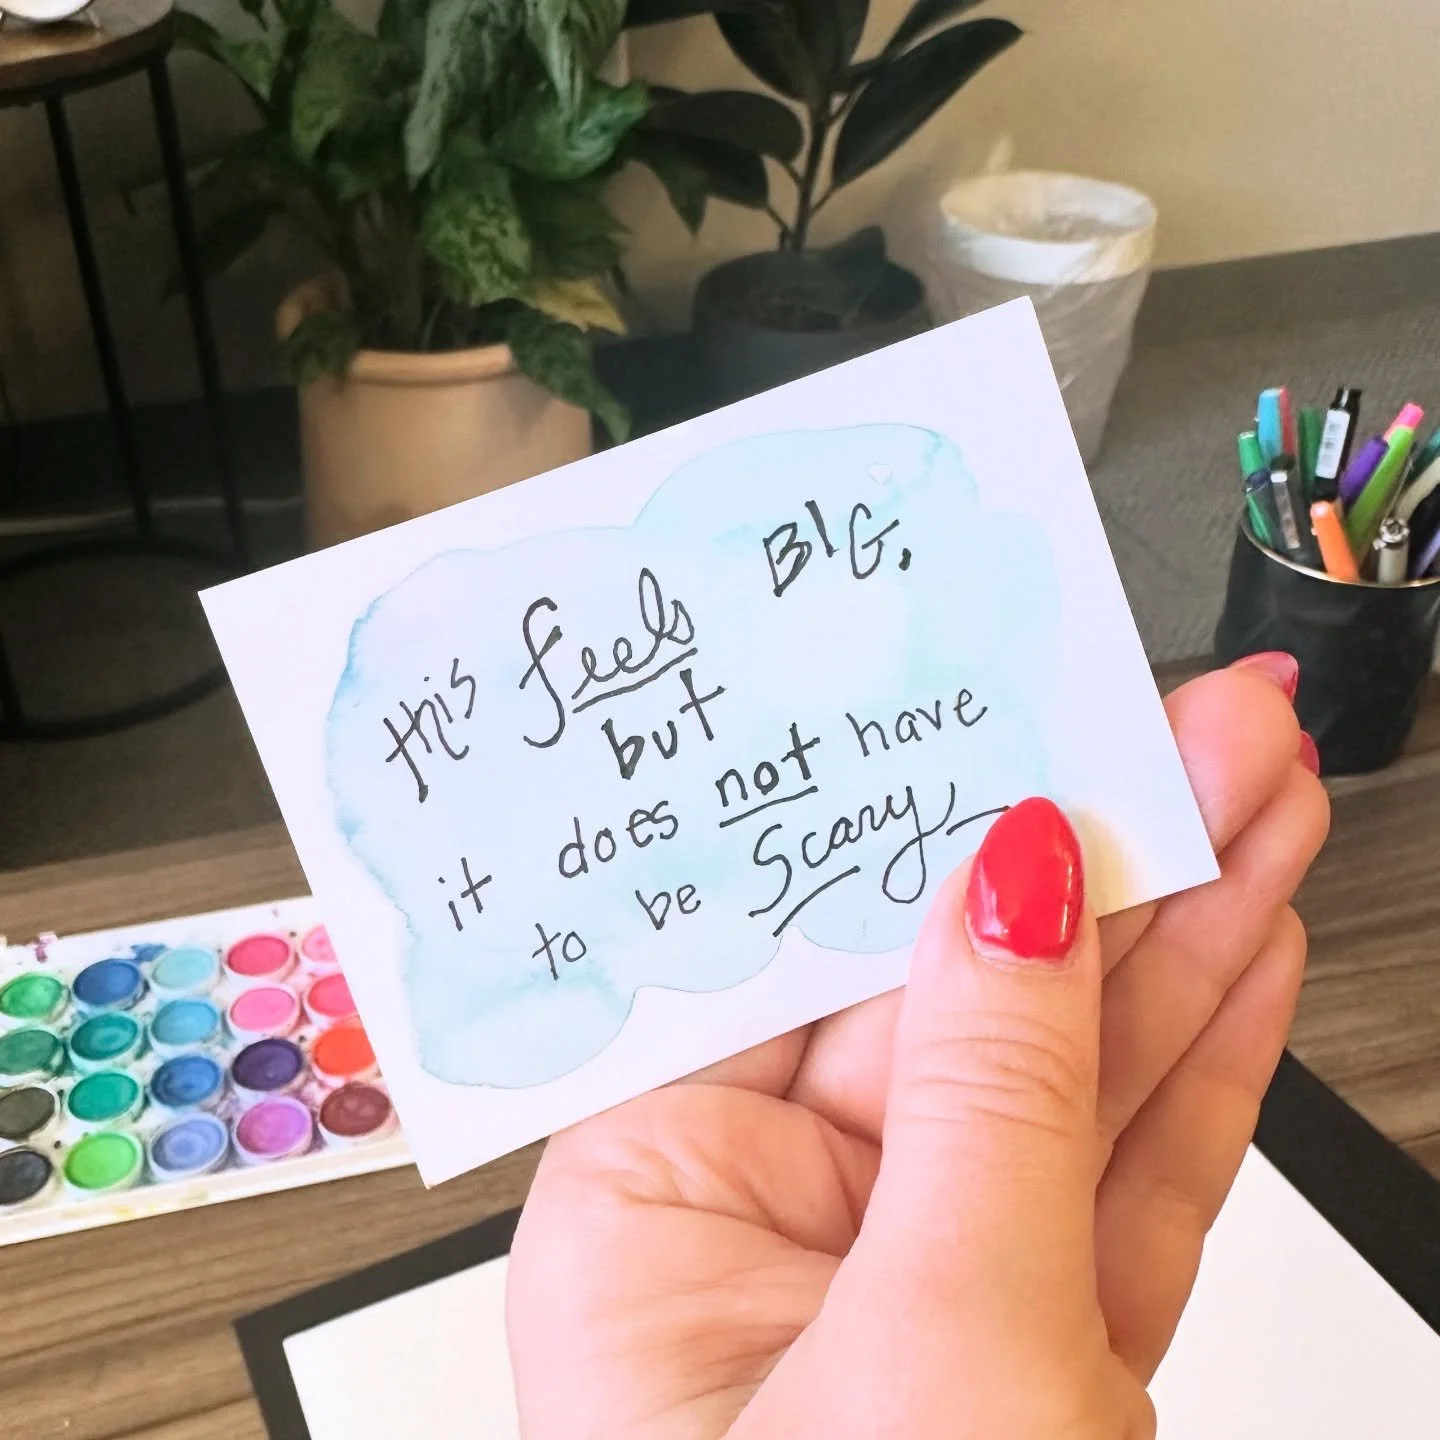 this feels BIG,
but
it does not have
to be Scary